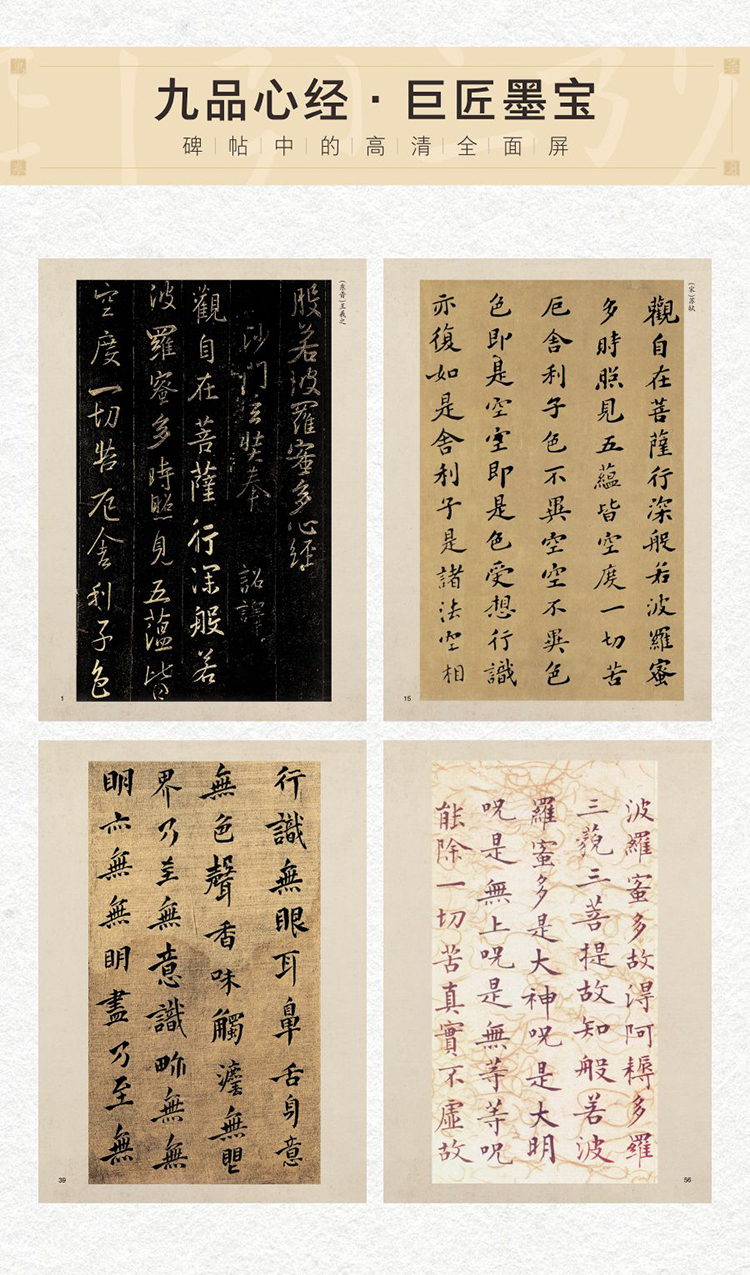 九品心经·巨匠墨宝
碑帖中的高清全面屏
(东晋)王羲之
般若波羅蜜多心經
沙門玄奘奉 詔譯
觀自在菩薩行深般若
波羅蜜多時照見五蘊皆
空度一切苦厄舍利子色
1
(宋)苏轼
觀自在菩薩行深般若波羅蜜
多時照見五蘊皆空度一切苦
厄舍利子色不異空空不異色
色即是空空即是色受想行識
亦復如是舍利子是諸法空相
15
行識無眼耳鼻舌身意
無色聲香味觸法無眼
界乃至無意識界無無
明亦無無明盡乃至無
39
波羅蜜多故得阿耨多羅
三藐三菩提故知般若波
羅蜜多是大神呪是大明
呪是無上呪是無等等呪
能除一切苦真實不虛故
56